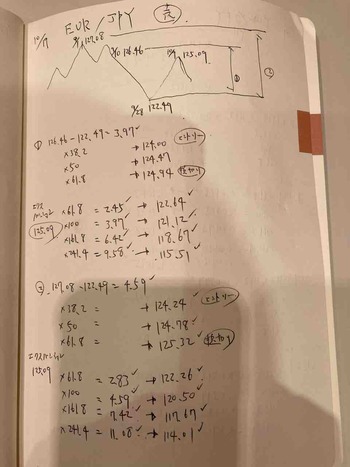 10/19 EUR/JPY 売
9/1 127.08
9/10 126.46
10/9 125.09
① ②
9/28 122.49
① 126.46 - 122.49 = 3.97 ✓
×38.2 → 124.00 ✓ エントリー
×50 → 124.47 ✓
×61.8 → 124.94 ✓ 損切り
エクスパンション
125.09
×61.8 = 2.45 ✓ → 122.64 ✓
×100 = 3.97 ✓ → 121.12 ✓
×161.8 = 6.42 ✓ → 118.67 ✓
×241.4 = 9.58 ✓ → 115.51 ✓
② 127.08 - 122.49 = 4.59 ✓
×38.2 = → 124.24 ✓ エントリー
×50 = → 124.78 ✓
×61.8 = → 125.32 ✓ 損切り
エクスパンション
125.09
×61.8 = 2.83 ✓ → 122.26 ✓
×100 = 4.59 ✓ → 120.50 ✓
×161.8 = 7.42 ✓ → 117.67 ✓
×241.4 = 11.08 ✓ → 114.01 ✓